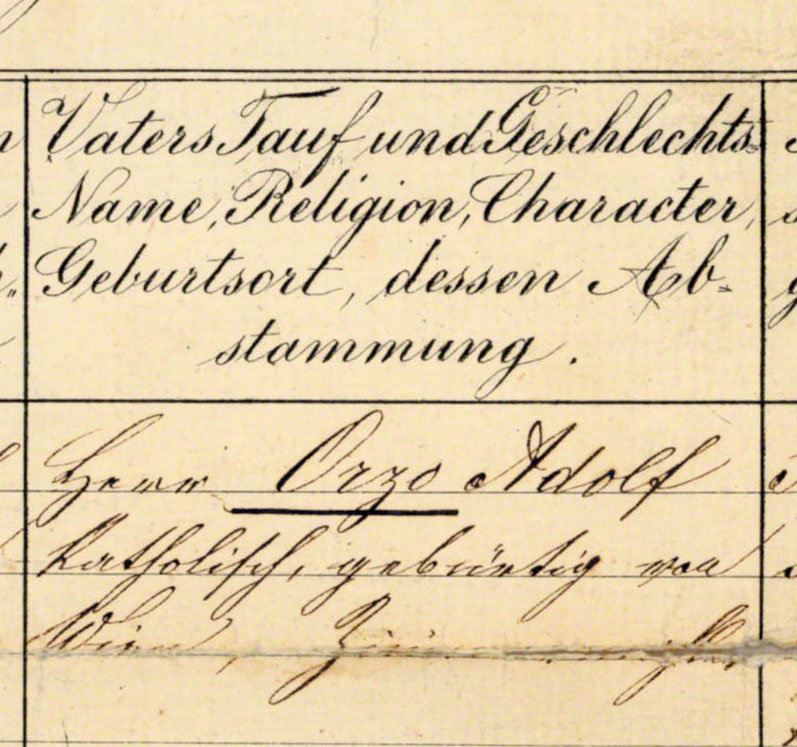 Vaters Tauf und Geschlechts-
Name, Religion, Character,
Geburtsort, dessen Ab-
stammung.
Herr Orzo Adolf
katholisch, gebürtig von
Wien,